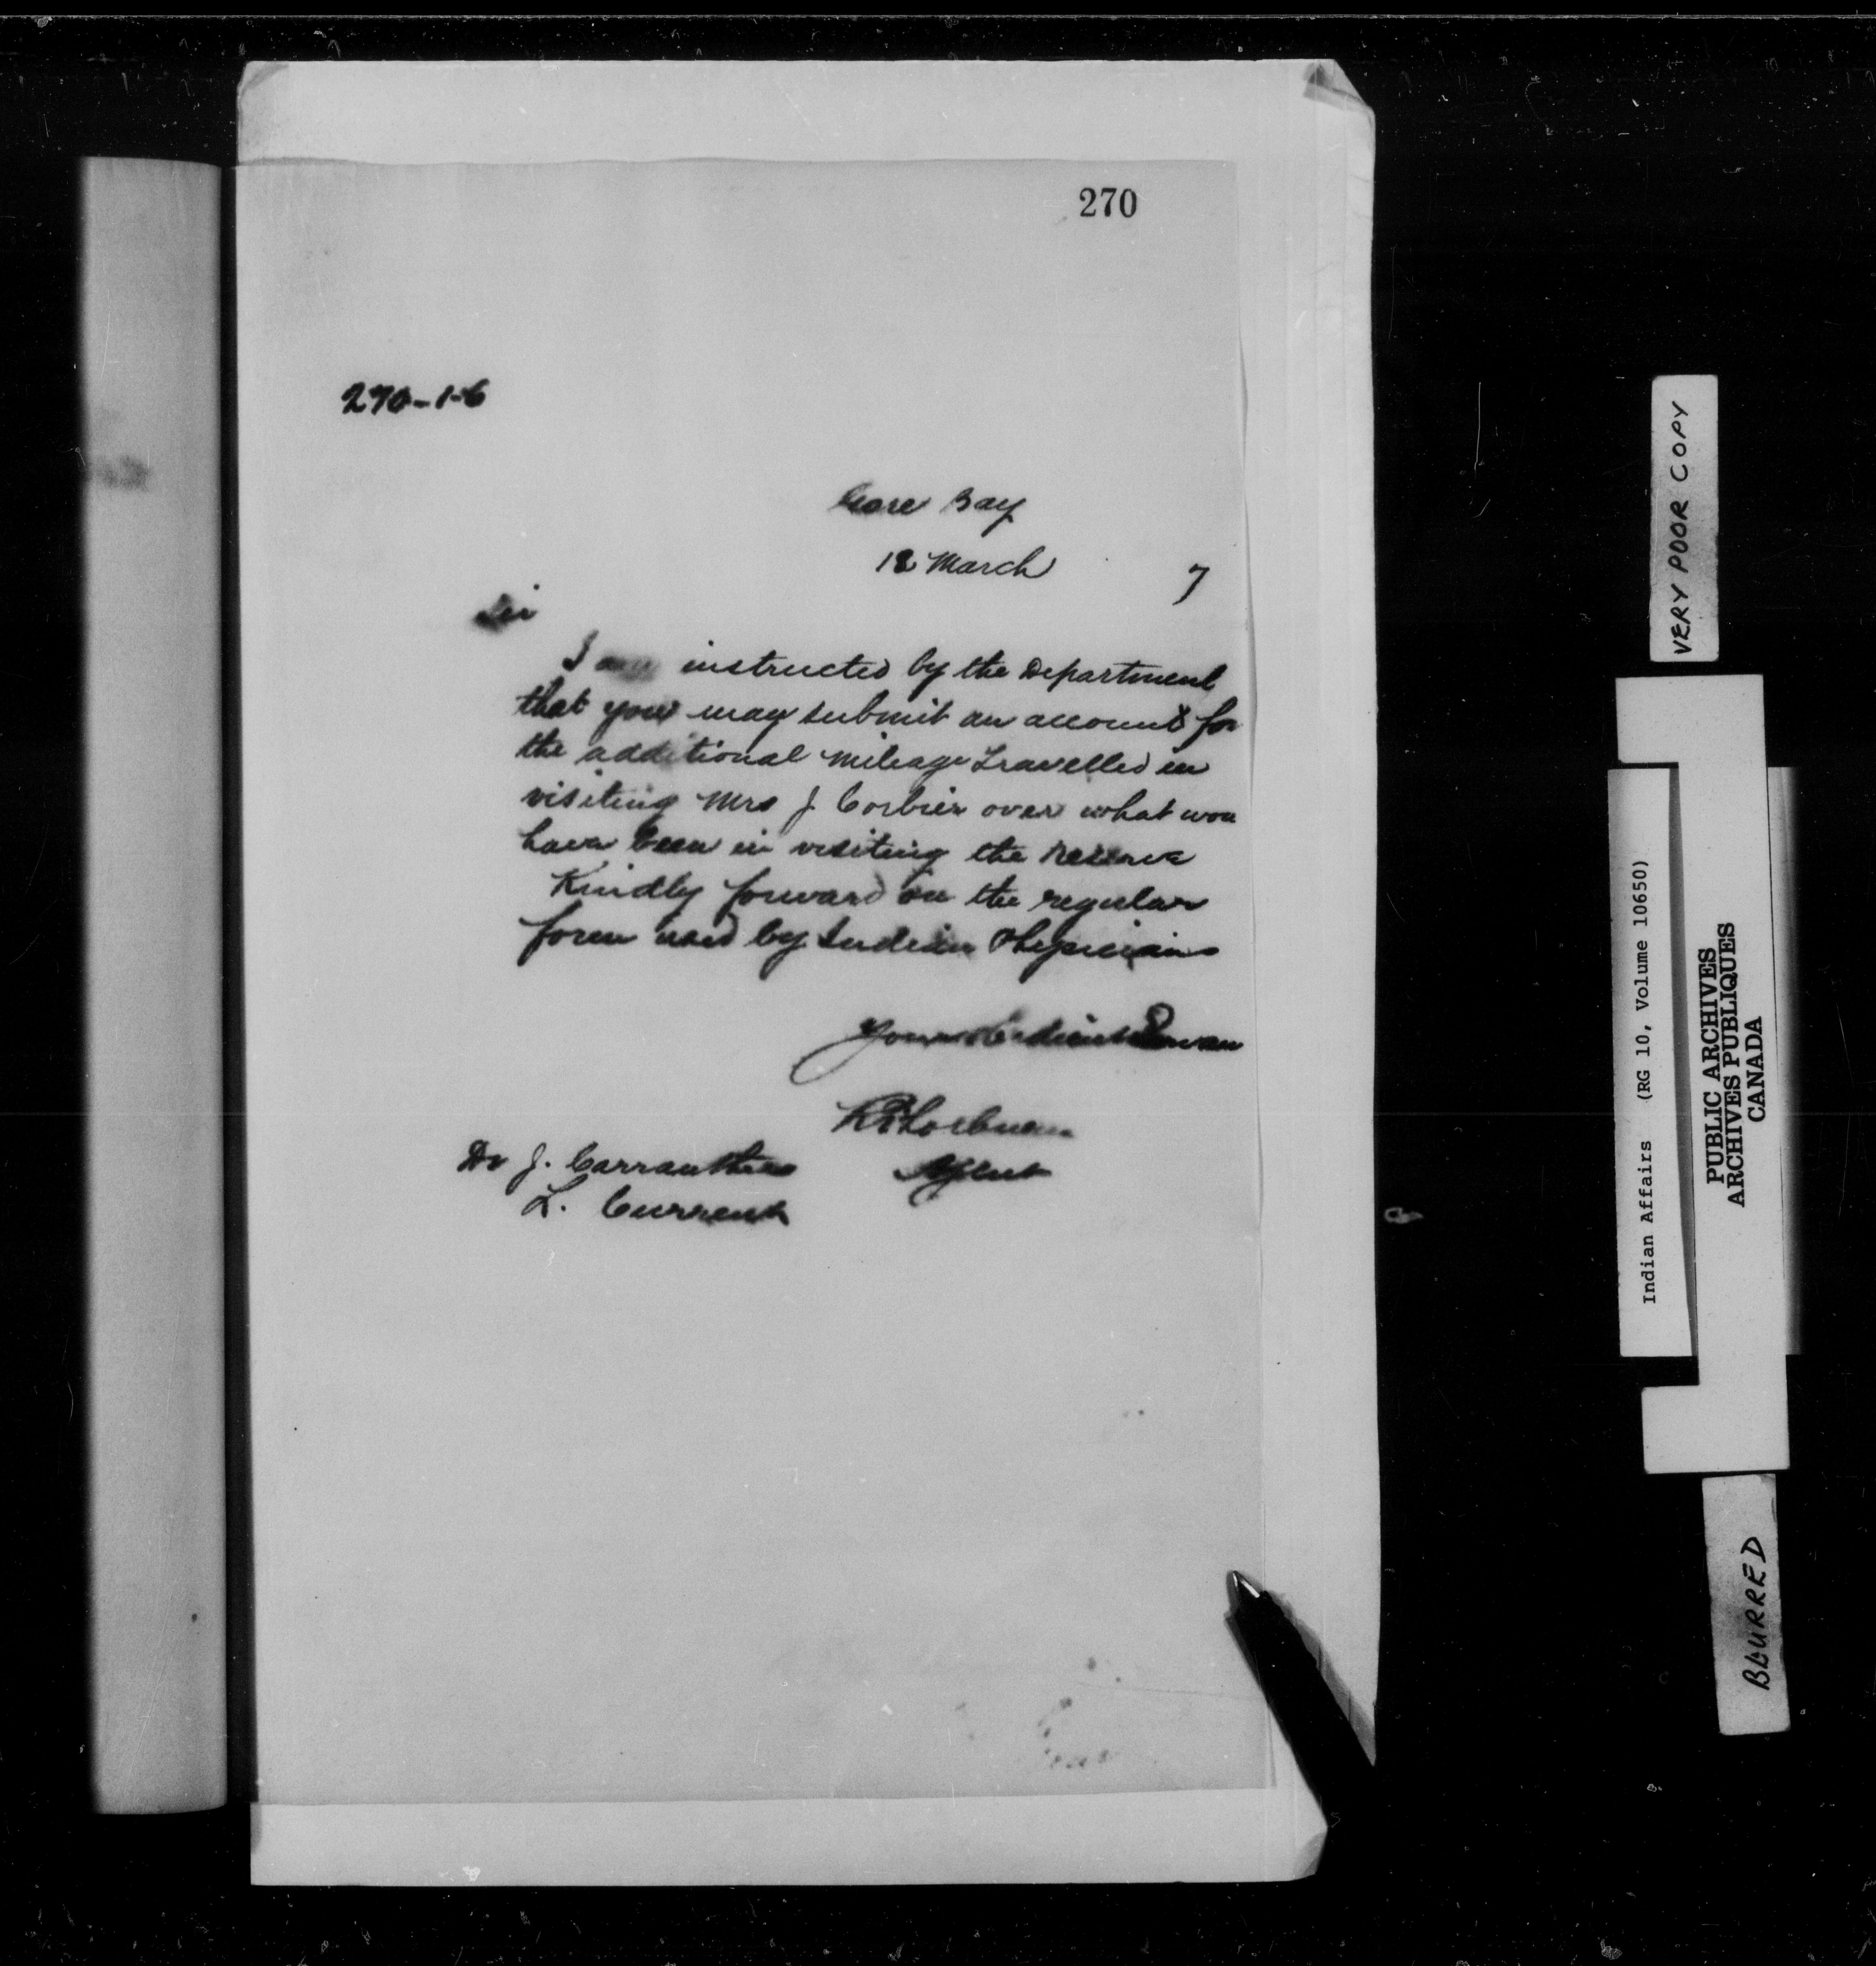 270
270-1-6
Gore Bay
18 March 7
Sir
I am instructed by the Department
that you may submit an account for
the additional mileage travelled in
visiting Mrs J Corbier over what wou
have been in visiting the reserve
Kindly forward on the regular
form used by Indian Physicians
Your Obedient Servan
Agent
Dr J. Carruthers
L. Current
VERY POOR COPY
Indian Affairs (RG 10, Volume 10650)
PUBLIC ARCHIVES
ARCHIVES PUBLIQUES
CANADA
BLURRED